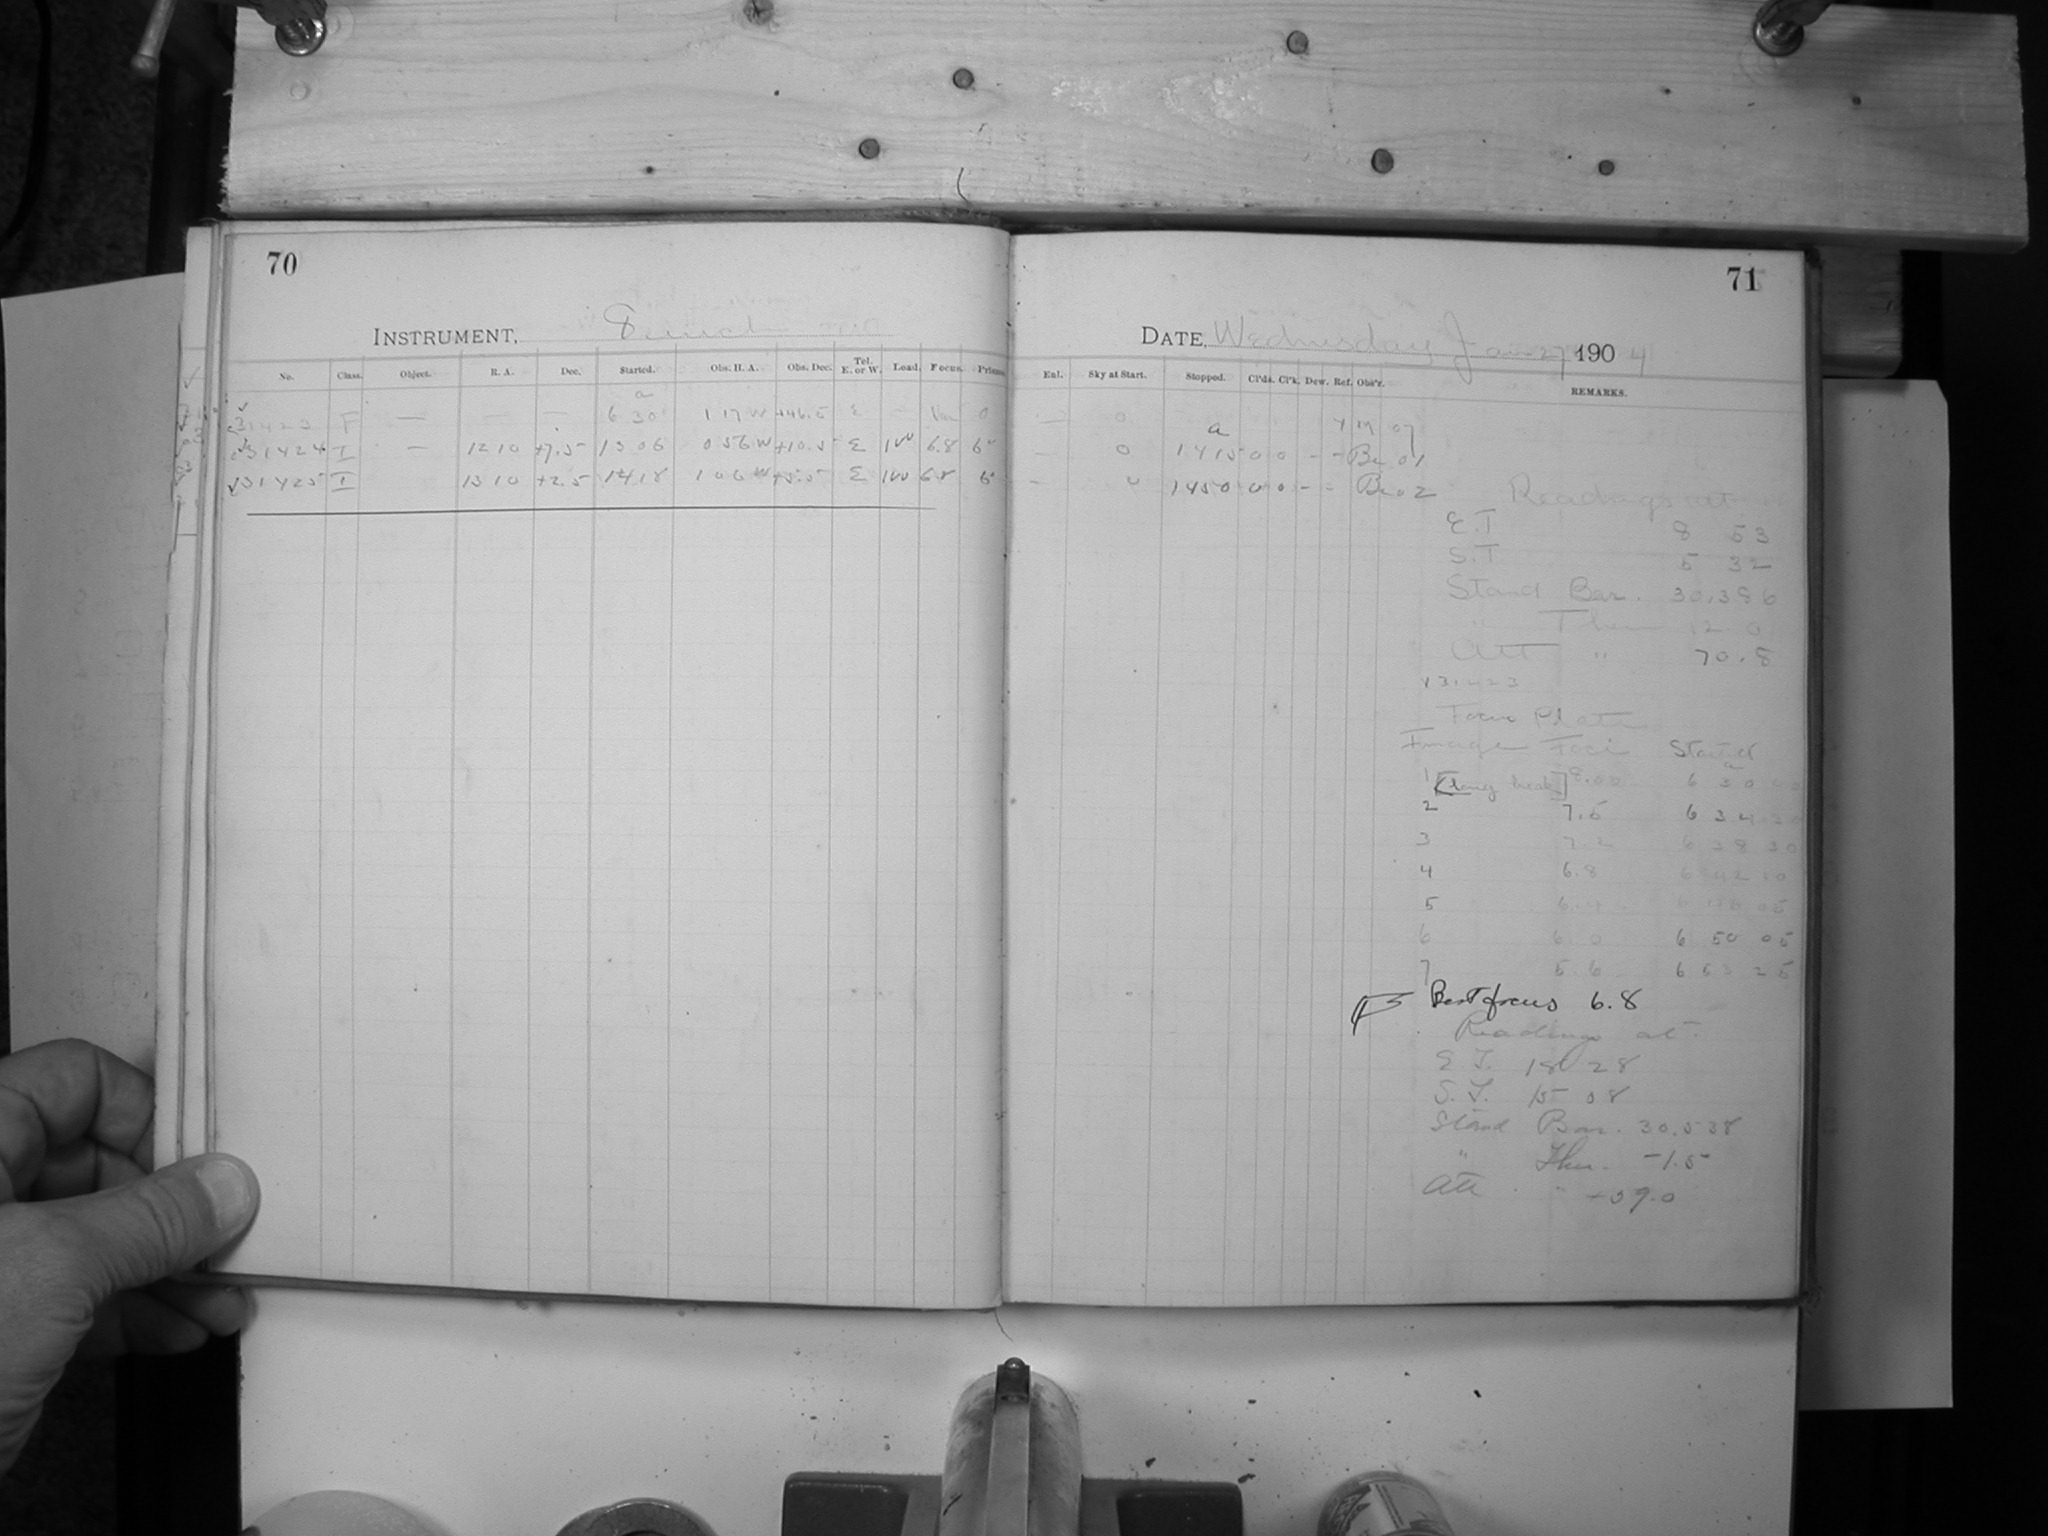 70
INSTRUMENT, 8 inch
No. Class. Object. R. A. Dec. Started. Obs. H. A. Obs. Dec. Tel. E. or W. Load. Focus.
31423 F — — — 6 30 1 17 W +46.5 E
31424 I — 12 10 +7.5 13 06 0 56 W +10.5 E 100 6.8 6
31425 I 13 10 +2.5 14 18 1 06 W +5.5 E 100 6.8 6
71
DATE, Wednesday Jan 27 1904
Enl. Sky at Start. Stopped. Cl'ds. Cl'k. Dew. Ref. Obs'r. REMARKS.
— 0
— 0 14 15 0 0 - - Be 01
— 0 14 50 0 0 - - Be 02
Readings at
E.T 8 53
S.T 5 32
Stand Bar. 30.386
" Ther 12.0
Att " 70.8
31423
Focus Plate
Image Foci Started
1 8.00 6 30
2 7.6 6 34
3 7.2 6 38 30
4 6.8 6 42 10
5 6.4
6 6.0 6 50 05
7 5.6 6 53 25
Best focus 6.8
Readings at
E T. 18 28
S.T. 15 08
Stand Bar. 30.538
" Ther. -1.5
Att " +59.0